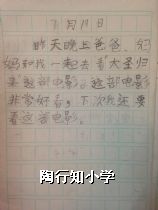 月19日
昨天晚上爸爸、妈
妈和我一起去看大圣归
来这部电影。这部电影
非常好看,下次我还要
看这部电影。
陶行知小学